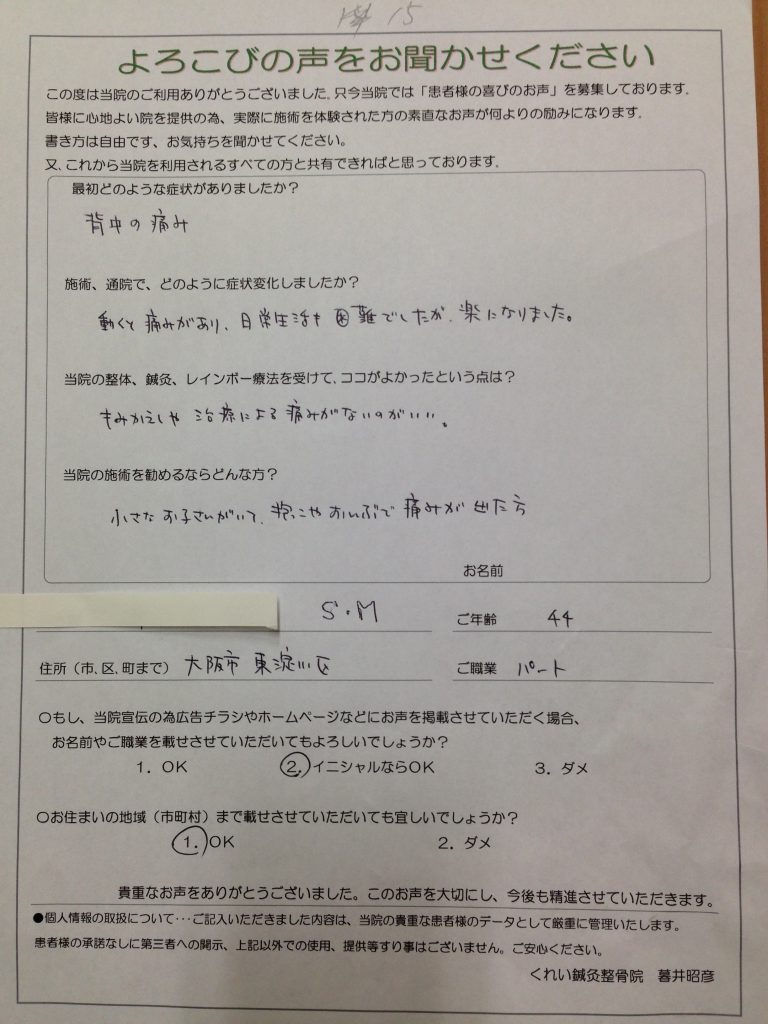 15
よろこびの声をお聞かせください
この度は当院のご利用ありがとうございました。只今当院では「患者様の喜びのお声」を募集しております。
皆様に心地よい院を提供の為、実際に施術を体験された方の素直なお声が何よりの励みになります。
書き方は自由です、お気持ちを聞かせてください。
又、これから当院を利用されるすべての方と共有できればと思っております。
最初どのような症状がありましたか？
背中の痛み
施術、通院で、どのように症状変化しましたか？
動くと痛みがあり、日常生活も困難でしたが、楽になりました。
当院の整体、鍼灸、レインボー療法を受けて、ココがよかったという点は？
もみかえしや治療による痛みがないのがいい。
当院の施術を勧めるならどんな方？
小さなお子さんがいて、抱っこやおんぶで痛みが出た方
お名前
S.M
ご年齢 44
住所（市、区、町まで） 大阪市 東淀川区
ご職業 パート
○もし、当院宣伝の為広告チラシやホームページなどにお声を掲載させていただく場合、
お名前やご職業を載せさせていただいてもよろしいでしょうか？
1．OK 2．イニシャルならOK 3．ダメ
○お住まいの地域（市町村）まで載せさせていただいても宜しいでしょうか？
1．OK 2．ダメ
貴重なお声をありがとうございました。このお声を大切にし、今後も精進させていただきます。
●個人情報の取扱について･･･ご記入いただきました内容は、当院の貴重な患者様のデータとして厳重に管理いたします。
患者様の承諾なしに第三者への開示、上記以外での使用、提供等すり事はございません。ご安心ください。
くれい鍼灸整骨院 暮井昭彦